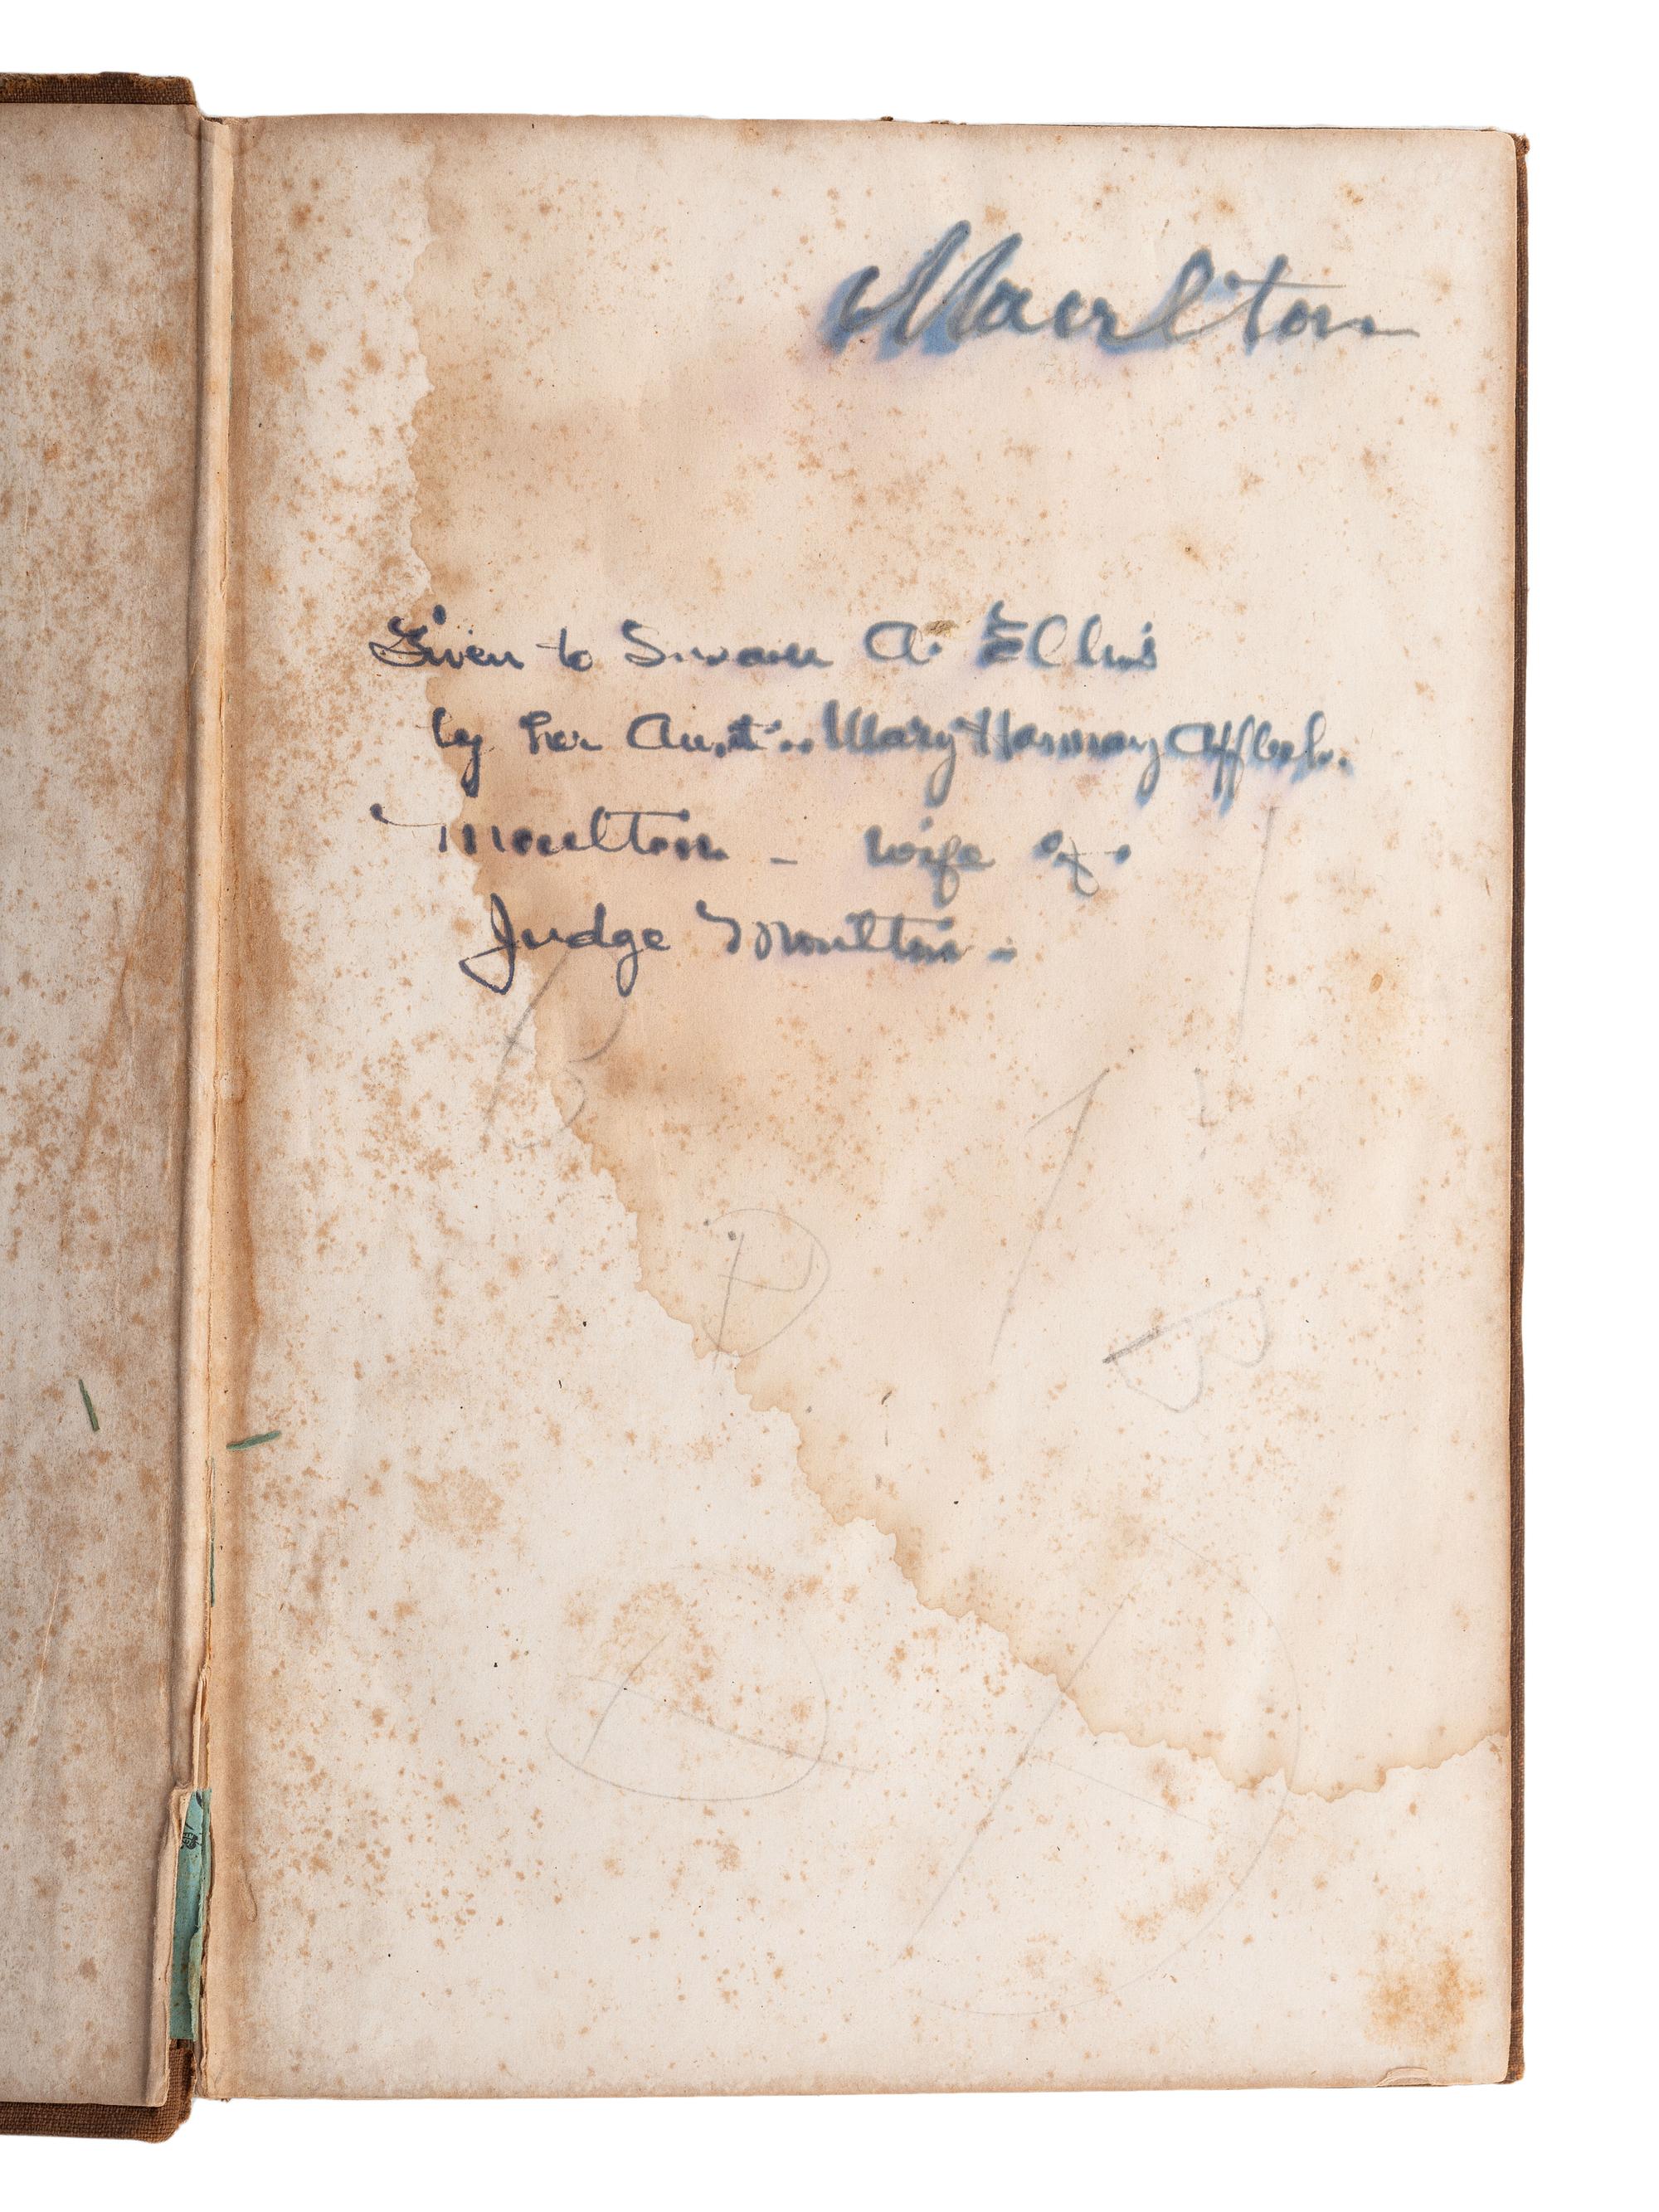 Moulton
Given to Susan A. Ellis
by her Aunt.. Mary Harvey Affleck.
Moulton - wife of.
Judge Moulton -
B
D
1
B